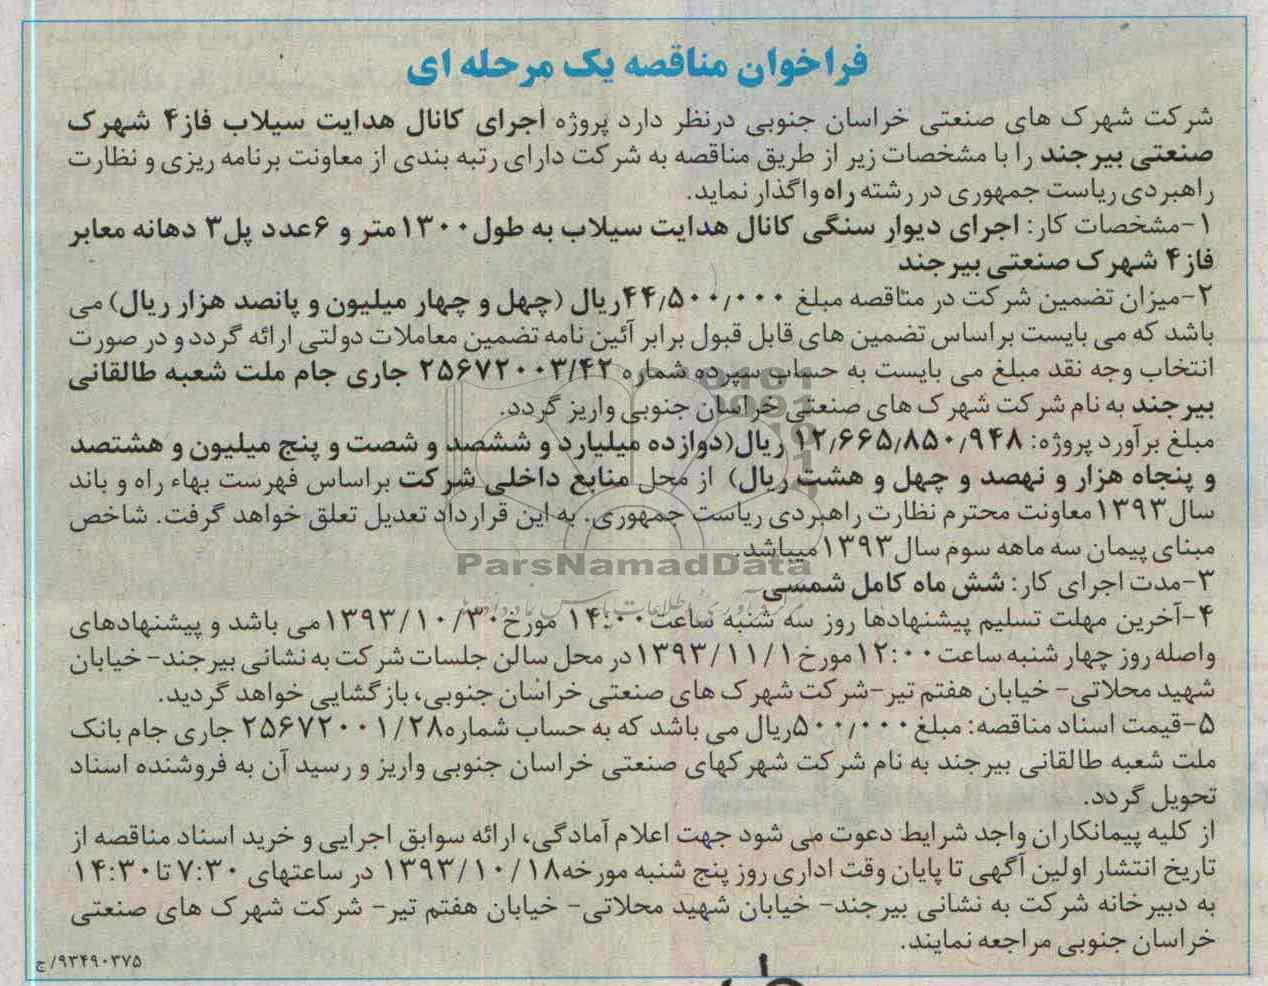 فراخوان مناقصه یک مرحله ای
شرکت شهرک های صنعتی خراسان جنوبی درنظر دارد پروژه اجرای کانال هدایت سیلاب فاز۴ شهرک
صنعتی بیرجند را با مشخصات زیر از طریق مناقصه به شرکت دارای رتبه بندی از معاونت برنامه ریزی و نظارت
راهبردی ریاست جمهوری در رشته راه واگذار نماید.
۱-مشخصات کار: اجرای دیوار سنگی کانال هدایت سیلاب به طول۱۳۰۰متر و ۶عدد پل۳ دهانه معابر
فاز۴ شهرک صنعتی بیرجند
۲-میزان تضمین شرکت در مناقصه مبلغ ۴۴٫۵۰۰٫۰۰۰ریال (چهل و چهار میلیون و پانصد هزار ریال) می
باشد که می بایست براساس تضمین های قابل قبول برابر آئین نامه تضمین معاملات دولتی ارائه گردد و در صورت
انتخاب وجه نقد مبلغ می بایست به حساب سپرده شماره ۲۵۶۷۲۰۰۳/۴۲ جاری جام ملت شعبه طالقانی
بیرجند به نام شرکت شهرک های صنعتی خراسان جنوبی واریز گردد.
مبلغ برآورد پروژه: ۱۲٫۶۶۵٫۸۵۰٫۹۴۸ ریال(دوازده میلیارد و ششصد و شصت و پنج میلیون و هشتصد
و پنجاه هزار و نهصد و چهل و هشت ریال) از محل منابع داخلی شرکت براساس فهرست بهاء راه و باند
سال۱۳۹۳معاونت محترم نظارت راهبردی ریاست جمهوری. به این قرارداد تعدیل تعلق خواهد گرفت. شاخص
مبنای پیمان سه ماهه سوم سال۱۳۹۳میباشد.
ParsNamadData
۳-مدت اجرای کار: شش ماه کامل شمسی
۴-آخرین مهلت تسلیم پیشنهادها روز سه شنبه ساعت۱۴:۰۰ مورخ۱۳۹۳/۱۰/۳۰می باشد و پیشنهادهای
واصله روز چهار شنبه ساعت۱۲:۰۰مورخ۱۳۹۳/۱۱/۱در محل سالن جلسات شرکت به نشانی بیرجند- خیابان
شهید محلاتی- خیابان هفتم تیر-شرکت شهرک های صنعتی خراسان جنوبی، بازگشایی خواهد گردید.
۵-قیمت اسناد مناقصه: مبلغ۵۰۰٫۰۰۰ریال می باشد که به حساب شماره۲۵۶۷۲۰۰۱/۲۸ جاری جام بانک
ملت شعبه طالقانی بیرجند به نام شرکت شهرکهای صنعتی خراسان جنوبی واریز و رسید آن به فروشنده اسناد
تحویل گردد.
از کلیه پیمانکاران واجد شرایط دعوت می شود جهت اعلام آمادگی، ارائه سوابق اجرایی و خرید اسناد مناقصه از
تاریخ انتشار اولین آگهی تا پایان وقت اداری روز پنج شنبه مورخه۱۳۹۳/۱۰/۱۸ در ساعتهای ۷:۳۰تا۱۴:۳۰
به دبیرخانه شرکت به نشانی بیرجند- خیابان شهید محلاتی- خیابان هفتم تیر- شرکت شهرک های صنعتی
خراسان جنوبی مراجعه نمایند.
۹۳۴۹۰۳۷۵/ج